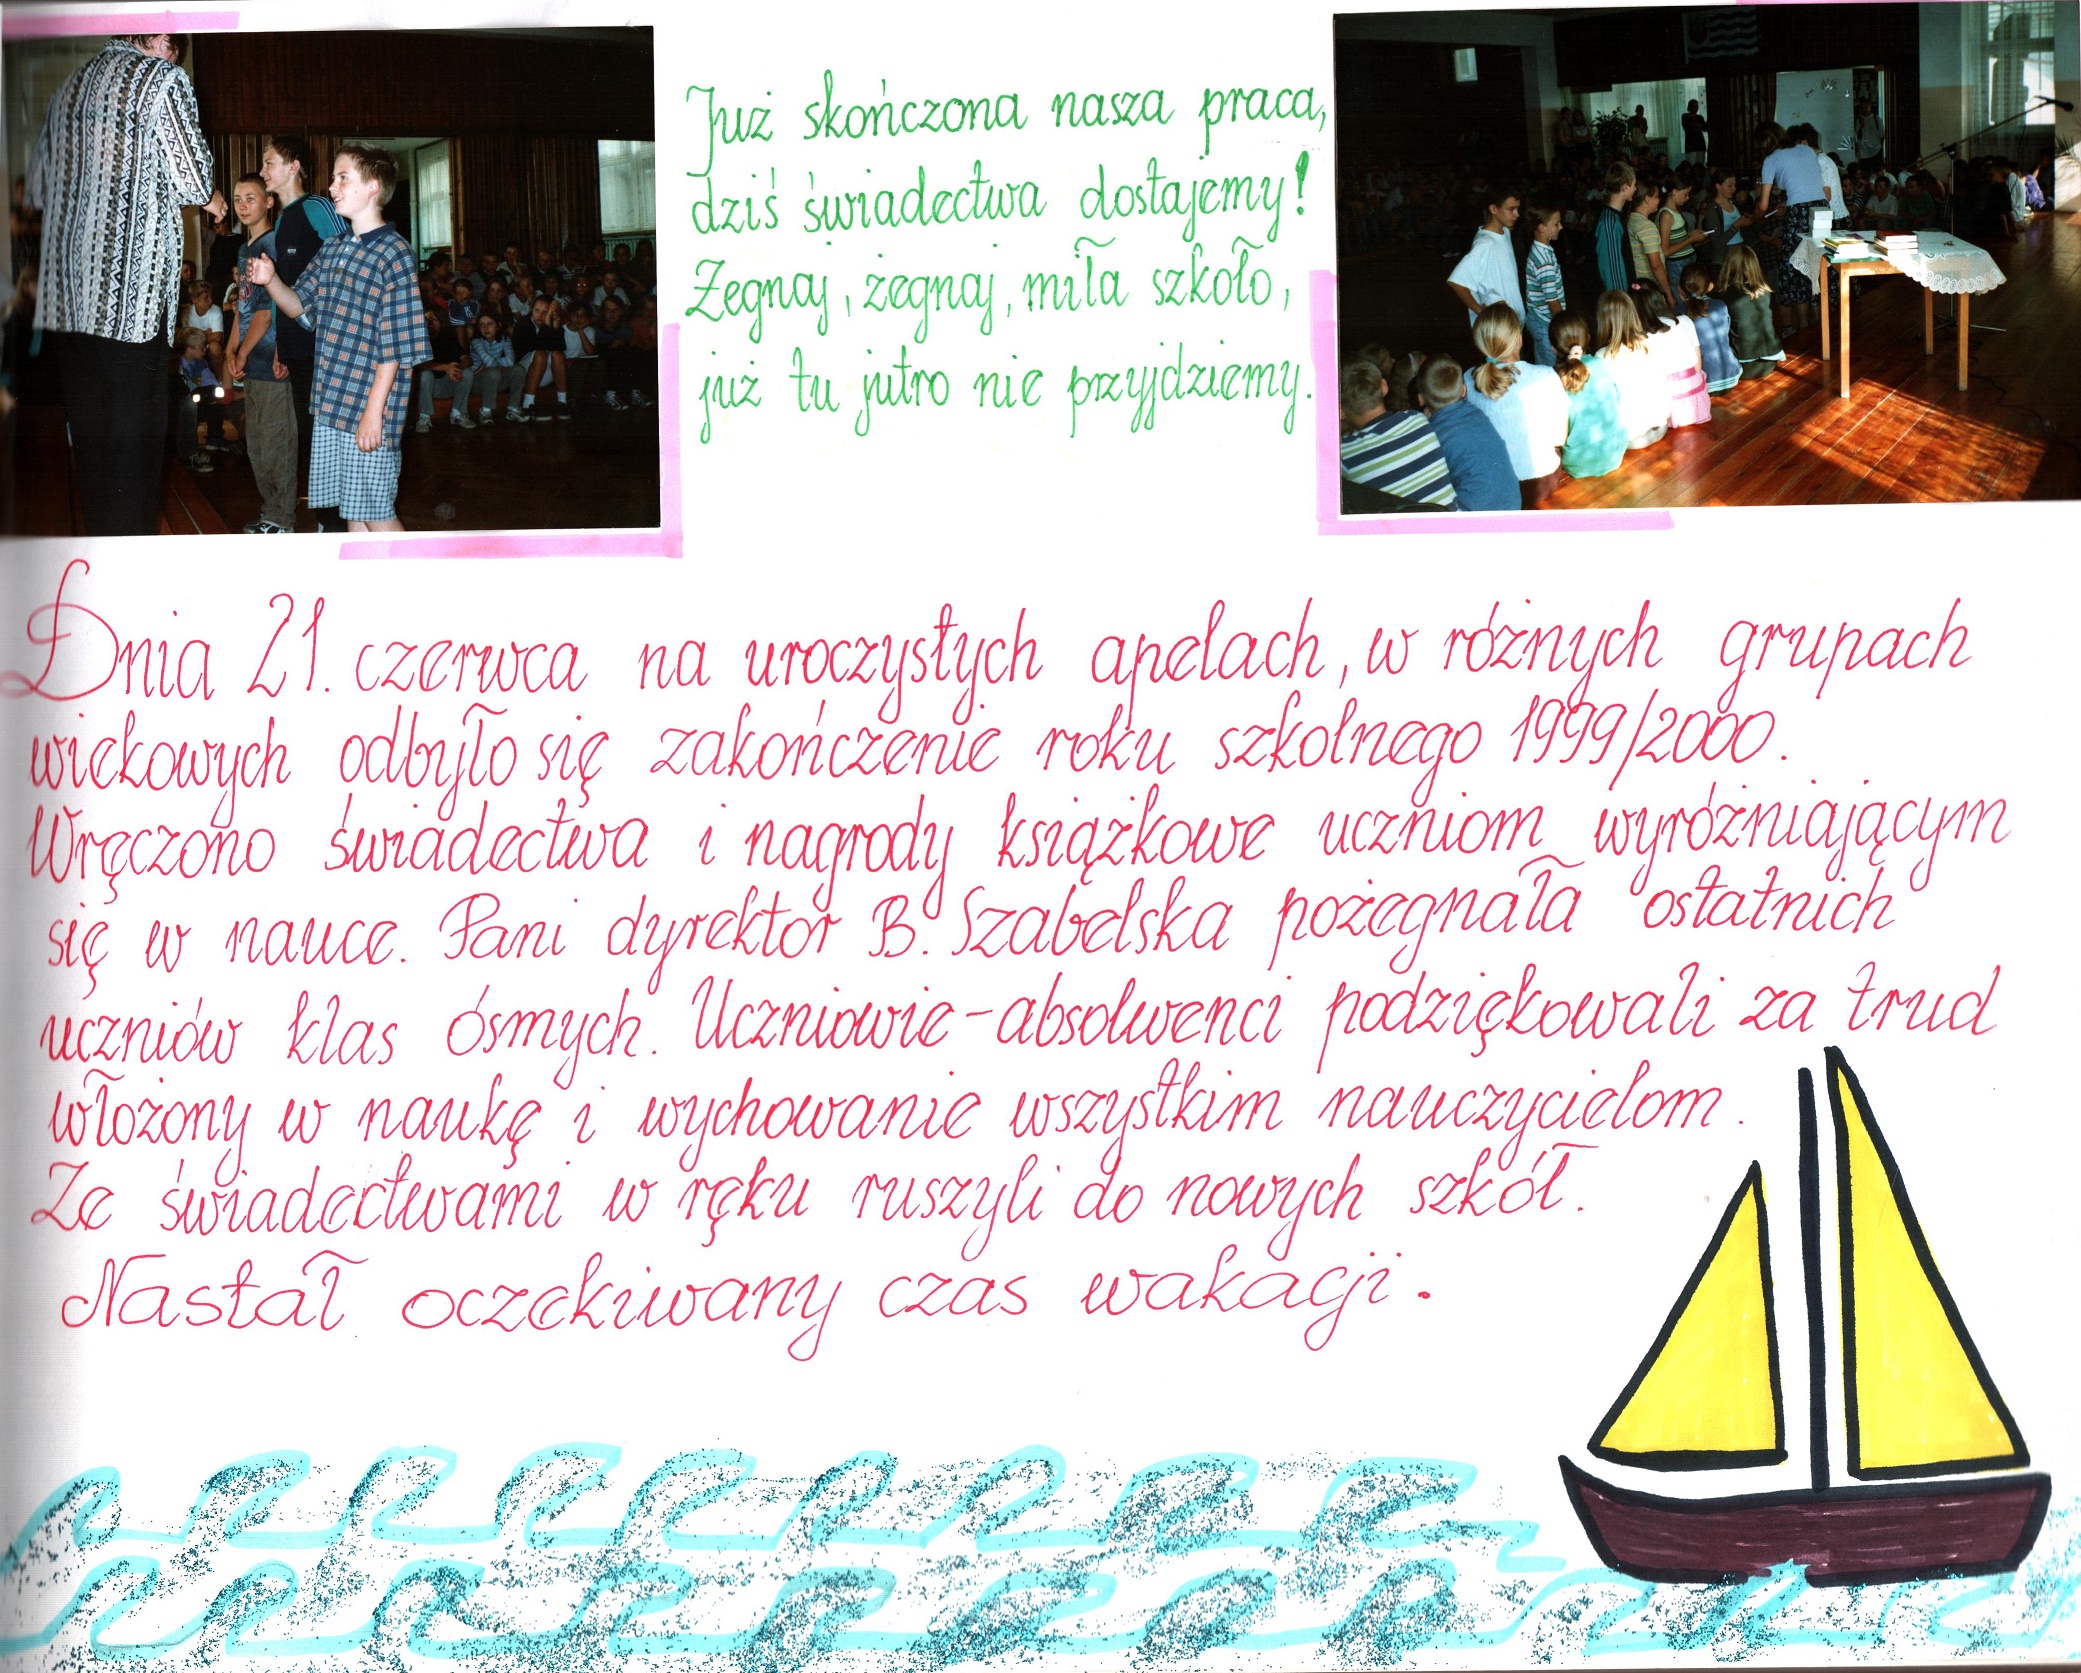 Już skończona nasza praca,
dziś świadectwa dostajemy!
Żegnaj, żegnaj, miła szkoło,
już tu jutro nie przyjdziemy.
Dnia 21. czerwca na uroczystych apelach, w różnych grupach
wiekowych odbyło się zakończenie roku szkolnego 1999/2000.
Wręczono świadectwa i nagrody książkowe uczniom wyróżniającym
się w nauce. Pani dyrektor B. Szabelska pożegnała ostatnich
uczniów klas ósmych. Uczniowie-absolwenci podziękowali za trud
włożony w naukę i wychowanie wszystkim nauczycielom.
Ze świadectwami w ręku ruszyli do nowych szkół.
Nastał oczekiwany czas wakacji.